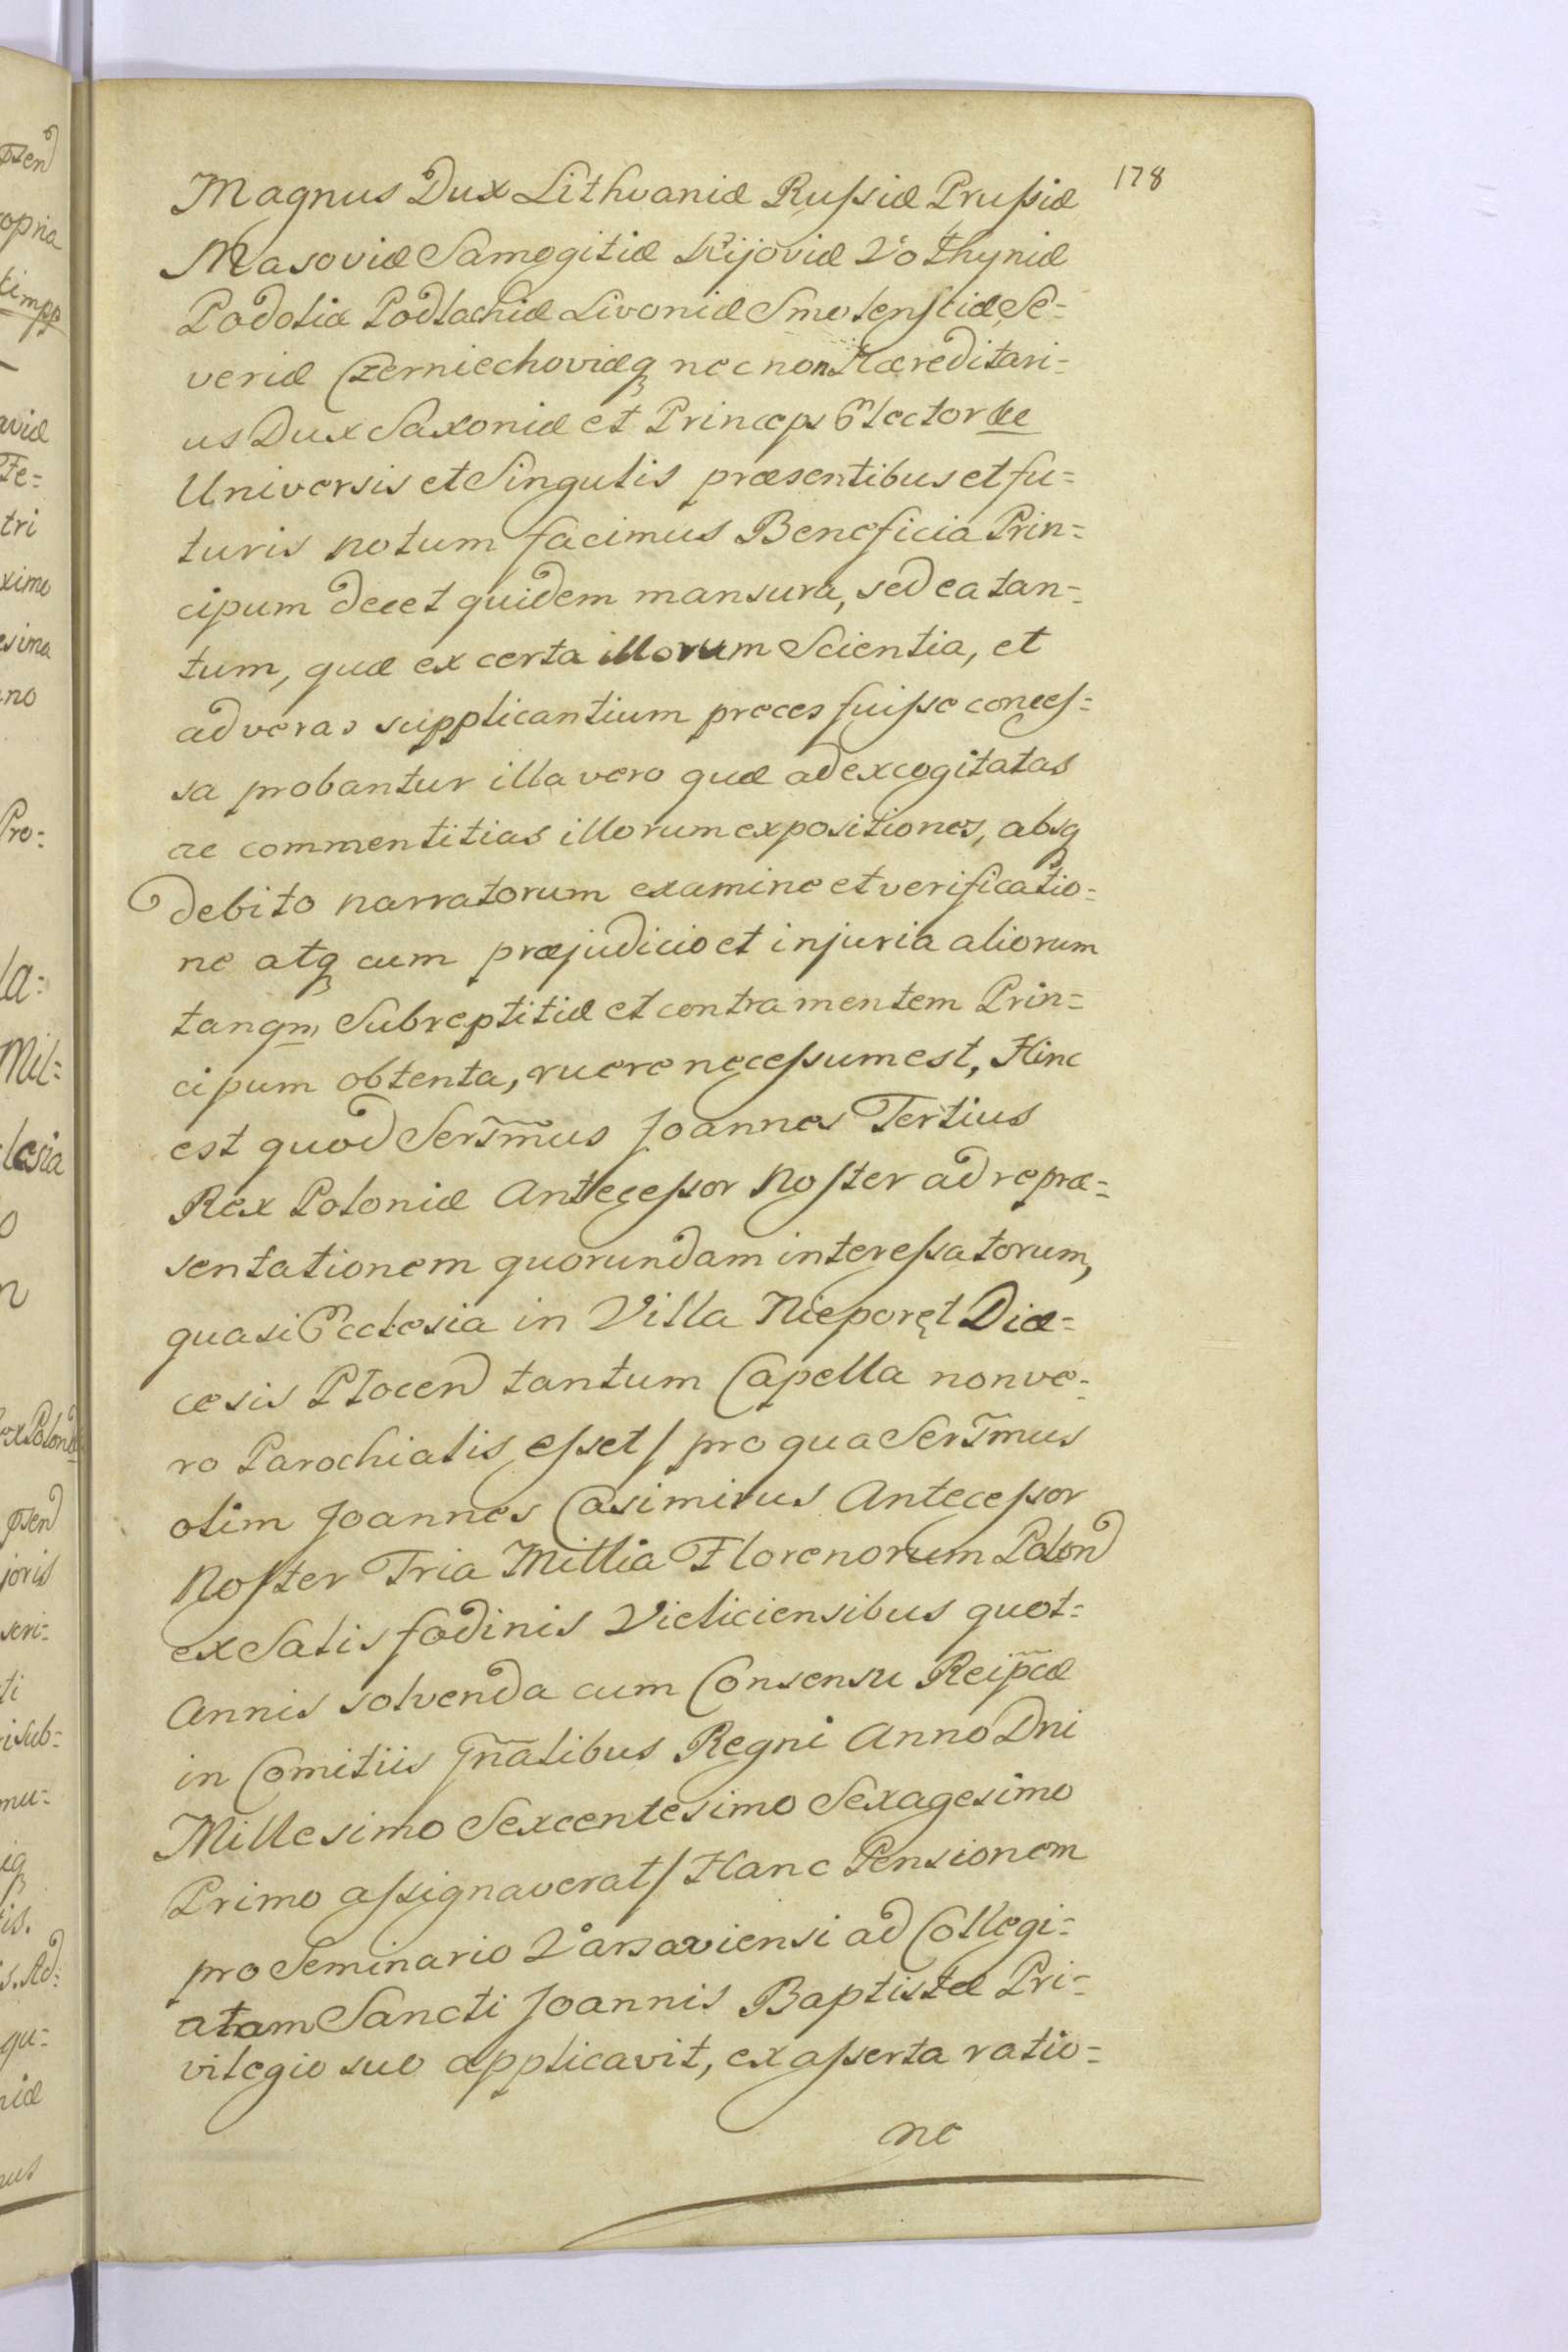 178
Magnus Dux Lithvaniæ Russiæ Prussiæ
Masoviæ Samogitiæ Kijoviæ Volhyniæ
Podoliæ Podlachiæ Livoniæ Smolensciæ Se=
veriæ Czerniechoviæq nec non Hæreditari=
us Dux Saxoniæ et Princeps Elector &c
Universis et Singulis præsentibus et fu=
turis notum facimus Beneficia Prin=
cipum decet quidem mansura, sed ea tan=
tum, quæ ex certa illorum Scientia, et
ad veras supplicantium preces fuisse conces=
sa probantur illa vero quæ ad excogitatas
ac commentitias illorum expositiones, absq
debito narratorum examine et verificatio=
ne atq cum præjudicio et injuria aliorum
tanqm Subreptitiæ et contra mentem Prin=
cipum obtenta, ruere necessum est, Hinc
est quod Serm̃us Joannes Tertius
Rex Poloniæ Antecessor Noster ad repræ=
sentationem quorundam interessatorum,
quasi Ecclesia in Villa Nieporęt Diæ=
cesis Plocen tantum Capella non ve=
ro Parochialis esset / pro qua Serm̃us
olim Joannes Casimirus Antecessor
Noster Tria Millia Florenorum Polon
ex Salis fodinis Vieliciensibus quot=
Annis solvenda cum Consensu Reip̃cæ
in Comitiis Gñalibus Regni Anno Dni
Millesimo Sexcentesimo Sexagesimo
Primo assignaverat / Hanc Pensionem
pro Seminario Varsaviensi ad Collegi=
atam Sancti Joannis Baptistæ Pri=
vilegio suo applicavit, ex asserta ratio=
ne